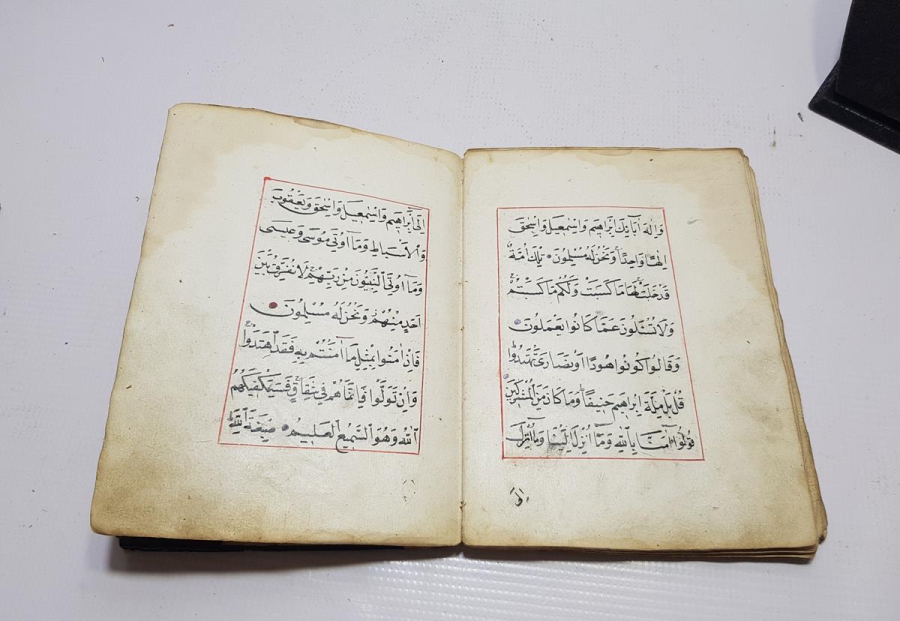 وَإِلٰهَ آبَائِكَ إِبْرَاهِيمَ وَإِسْمٰعِيلَ وَإِسْحٰقَ
إِلٰهًا وَاحِدًا وَنَحْنُ لَهُ مُسْلِمُونَ تِلْكَ أُمَّةٌ
قَدْ خَلَتْ لَهَا مَا كَسَبَتْ وَلَكُمْ مَا كَسَبْتُمْ
وَلَا تُسْئَلُونَ عَمَّا كَانُوا يَعْمَلُونَ
وَقَالُوا كُونُوا هُودًا أَوْ نَصَارَى تَهْتَدُوا
قُلْ بَلْ مِلَّةَ إِبْرَاهِيمَ حَنِيفًا وَمَا كَانَ مِنَ الْمُشْرِكِينَ
قُولُوا آمَنَّا بِاللّٰهِ وَمَا أُنْزِلَ إِلَيْنَا وَمَا أُنْزِلَ
إِلَى
إِلَى إِبْرَاهِيمَ وَإِسْمٰعِيلَ وَإِسْحٰقَ وَيَعْقُوبَ
وَالْأَسْبَاطِ وَمَا أُوتِيَ مُوسَى وَعِيسَى
وَمَا أُوتِيَ النَّبِيُّونَ مِنْ رَبِّهِمْ لَا نُفَرِّقُ بَيْنَ
أَحَدٍ مِنْهُمْ وَنَحْنُ لَهُ مُسْلِمُونَ
فَإِنْ آمَنُوا بِمِثْلِ مَا آمَنْتُمْ بِهِ فَقَدِ اهْتَدَوْا
وَإِنْ تَوَلَّوْا فَإِنَّمَا هُمْ فِي شِقَاقٍ فَسَيَكْفِيكَهُمُ
اللّٰهُ وَهُوَ السَّمِيعُ الْعَلِيمُ صِبْغَةَ اللّٰهِ